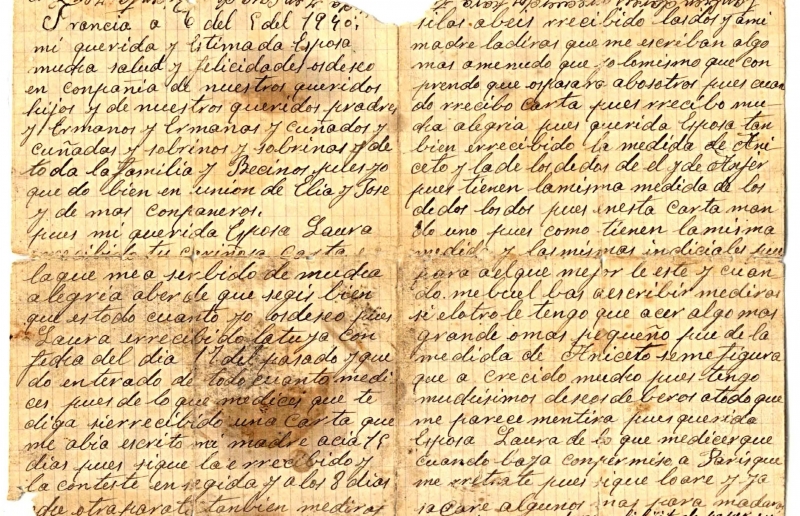 Francia a 6 del 5 del 1940,
mi querida y Estimada Esposa
mudia salud y felicidades osdeseo
en conpania de nuestros queridos
hijos y de nuestros queridos pradres
y Ermanos y Ermanas y cuñados y
cuñadas y sobrinos y sobrinas y de
toda la familia y Becinos pues yo
que do bien en union de Elia y Jose
y de mas conpaneros.
pues mi querida Esposa Laura
errecibido tu cariñosa Carta
la que me a serbido de mudia
alegria aber de que segis bien
que es todo cuanto yo osdeseo pues
Laura errecibido la tuya con
fedia del dia 17 del pasado y que
do enterado de todo cuanto medi
ces pues de lo que medices que te
diga sierrecibido una Carta que
me abia escrito mi madre acia 15
dias pues sigue la errecibido y
la conteste en segida y a los 8 dias
otra parate tanbien mediras
silas abeis rrecibido lasdos y ami
madre ladiras que me escriban algo
mas amenudo que yo lomismo que con
prendo que ospasara abosotros pues cuan
do rrecibo carta pues rrecibo mu
dia alegria pues querida Esposa tan
bien errecibido la medida de Ani
ceto y lade los dedos de el y de
pues tienen lamisma medida de los
dedos los dos pues enesta carta man
do uno pues como tienen lamisma
medid y las mismas indiciales pues
para aelque mejor le este y cuan
do me buel bas aescribir mediras
si elotro le tengo que acer algo mas
grande omas pequeño pue de la
medida de Aniceto seme figura
que a crecido mudio pues tengo
mudiisimos deseos de beros atodo que
me parece mentira pues querida
Esposa Laura de lo que medicerque
cuando baya conpermiso a Paris que
me rretrate pues sigue loare y ya
sacare algunos mas para madaros